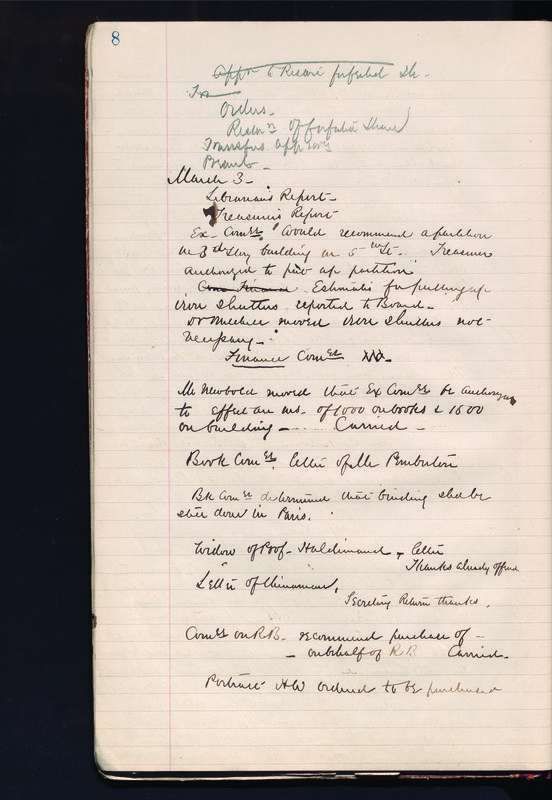 8
Appn to Restore forfeited Sh.
For
Orders.
Restorn of forfeited Shares
Transfers app
March 3.
Librarian's Report.
Treasurer's Report
Ex. Comee would recommend a partition
in 3rd story building on 5th St. Treasurer
authorized to put up partition
Com Finance Estimate for putting up
iron shutters reported to Board.
Dr Meehan moved iron shutters not
necessary.
Finance Comee
Mr Newbold moved that Ex Comee be authorized
to effect an ins. of 1000 on books & 1500
on building Carried
Book Comee. Letter of Mr Pemberton
Bk Comee determined that binding shd be
done in Paris.
Widow of Prof. Haldimand Letter
Thanks already offered
Letter of
Secretary Return thanks.
Comee on RB. recommend purchase of
on behalf of RB Carried.
Portrait HW ordered to be purchased